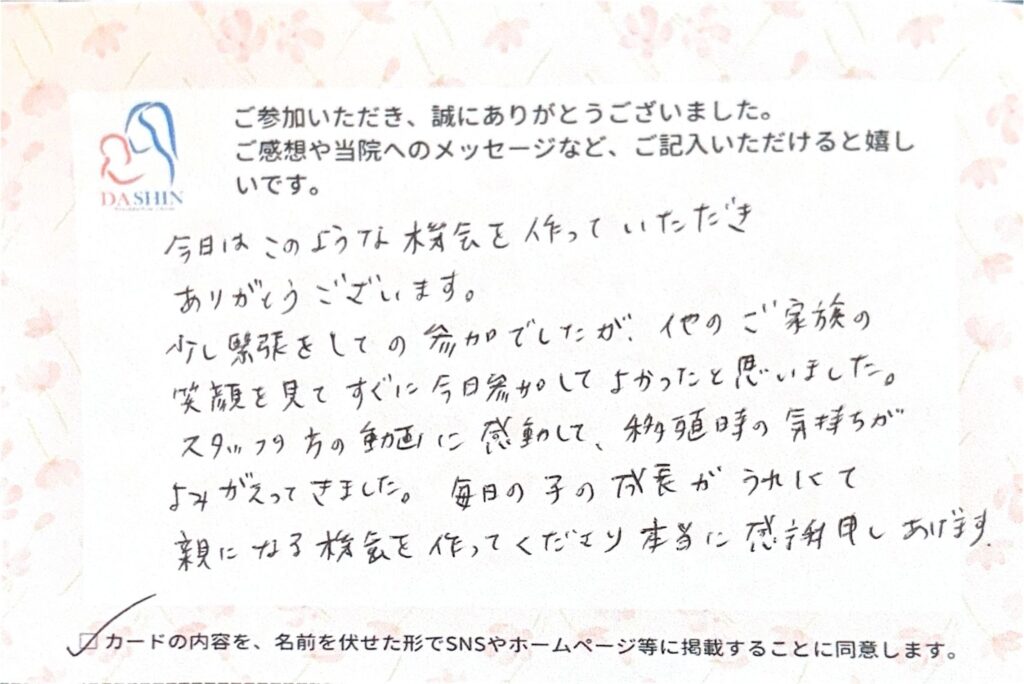 ご参加いただき、誠にありがとうございました。
ご感想や当院へのメッセージなど、ご記入いただけると嬉し
いです。
DASHIN
今日はこのような機会を作っていただき
ありがとうございます。
少し緊張をしての参加でしたが、他のご家族の
笑顔を見てすぐに今日参加してよかったと思いました。
スタッフ方の動画に感動して、移植時の気持ちが
よみがえってきました。毎日の子の成長がうれしくて
親になる機会を作ってくださり本当に感謝申しあげます。
カードの内容を、名前を伏せた形でSNSやホームページ等に掲載することに同意します。